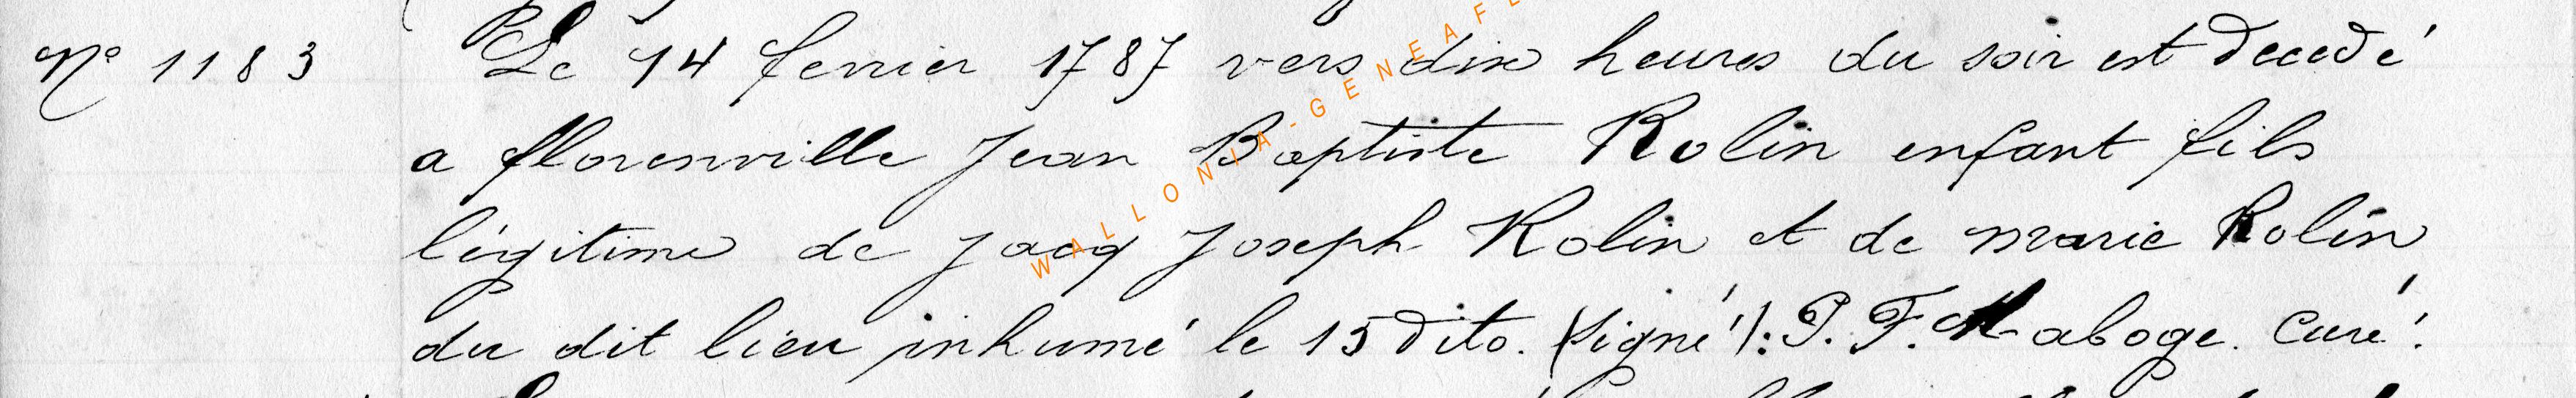 N° 1183 Le 14 fevrier 1787 vers dix heures du soir est decedé
a florenville Jean Baptiste Rolin enfant fils
légitime de Jacq Joseph Rolin et de marie Rolin
du dit lieu inhumé le 15 dito. (signé): P. F. Maboge. Curé.
WALLONIA-GENEAF